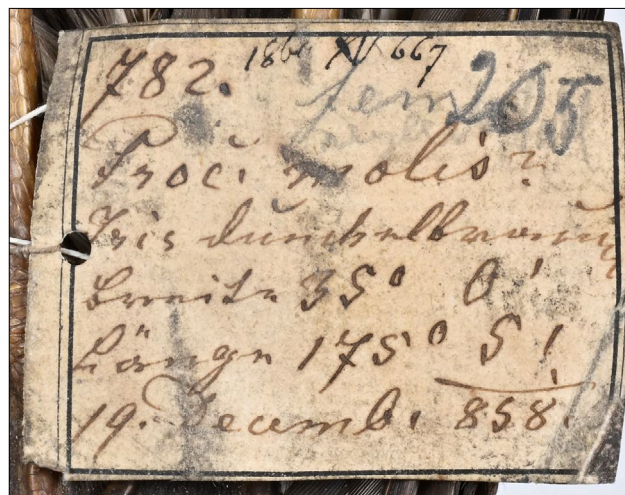 782. 186 XII 667
fem 205
Proc. molis?
Iris dunkelbraun
Breite 35° 0'
Länge 175° 5'
19. Decemb. 858.